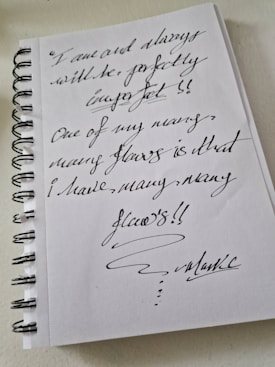 "I am and always
will be, perfectly
imperfect !!
One of my many,
many flaws is that
i have, many, many
flaws!!